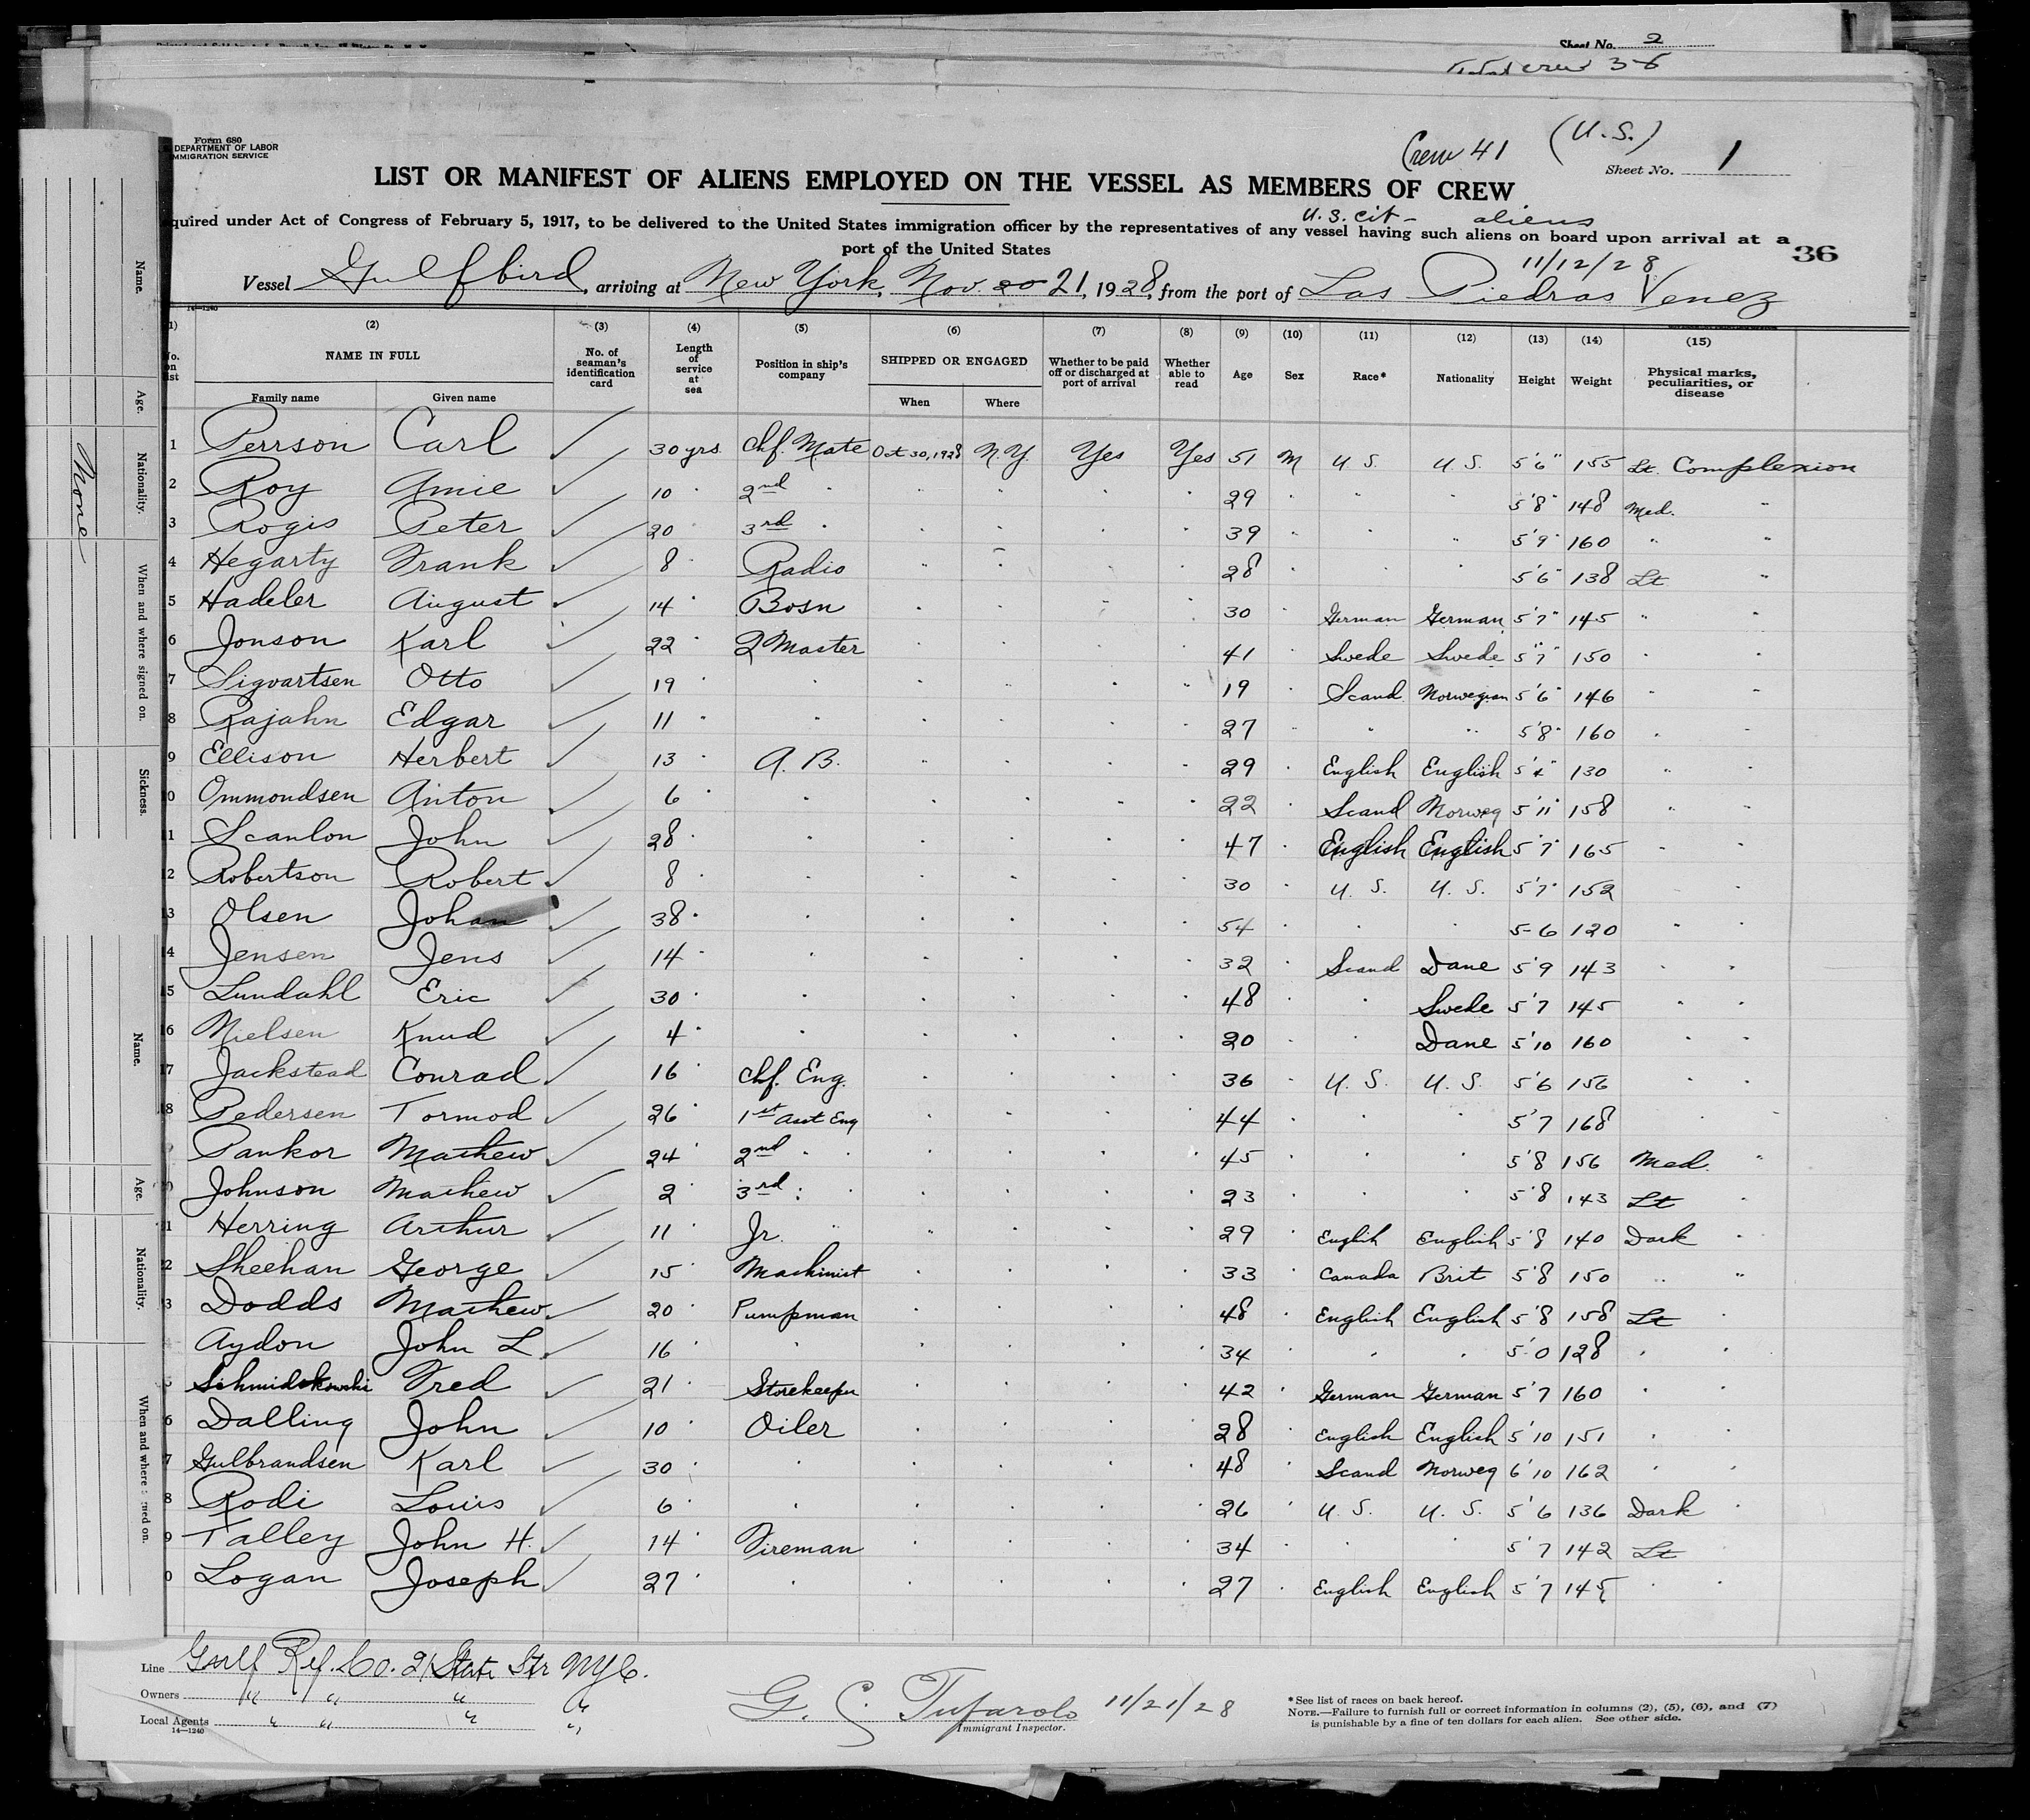 Sheet No. 2
Total crew 36
Form 680
DEPARTMENT OF LABOR
IMMIGRATION SERVICE
Crew 41 (U.S.)
Sheet No. 1
LIST OR MANIFEST OF ALIENS EMPLOYED ON THE VESSEL AS MEMBERS OF CREW
U.S. cit- aliens
quired under Act of Congress of February 5, 1917, to be delivered to the United States immigration officer by the representatives of any vessel having such aliens on board upon arrival at a
port of the United States
36
11/12/28
Vessel Gulfbird, arriving at New York, Nov. 20 21, 1928, from the port of Las Piedras Venez
14—1240
(1) (2) (3) (4) (5) (6) (7) (8) (9) (10) (11) (12) (13) (14) (15)
No. on list NAME IN FULL No. of seaman's identification card Length of service at sea Position in ship's company SHIPPED OR ENGAGED Whether to be paid off or discharged at port of arrival Whether able to read Age Sex Race* Nationality Height Weight Physical marks, peculiarities, or disease
Family name Given name When Where
1 Perrson Carl ✓ 30 yrs. Chf. Mate Oct 30, 1928 N.Y. Yes Yes 51 M U.S. U.S. 5'6" 155 Lt. Complexion
2 Roy Amie ✓ 10 " 2nd " " " " " 29 " " " 5'8" 148 Med. "
3 Rogis Peter ✓ 20 " 3rd " " " " " 39 " " " 5'9" 160 " "
4 Hegarty Frank ✓ 8 " Radio " " " " 28 " " " 5'6" 138 Lt "
5 Hadeler August ✓ 14 " Bosn " " " " 30 " German German 5'7" 145 " "
6 Jonson Karl ✓ 22 " Q Master " " " " 41 " Swede Swede 5'7" 150 " "
7 Sigvartsen Otto ✓ 19 " " " " " " 19 " Scand Norwegian 5'6" 146 " "
8 Rajahn Edgar ✓ 11 " " " " " " 27 " " " 5'8" 160 " "
9 Ellison Herbert ✓ 13 " A. B. " " " " 29 " English English 5'4" 130 " "
0 Ommondsen Anton ✓ 6 " " " " " " 22 " Scand Norweg 5'11" 158 " "
1 Scanlon John ✓ 28 " " " " " " 47 " English English 5'7" 165 " "
2 Robertson Robert ✓ 8 " " " " " " 30 " U.S. U.S. 5'7" 152 " "
13 Olsen Johan ✓ 38 " " " " " " 54 " " " 5-6 120 " "
14 Jensen Jens ✓ 14 " " " " " " 32 " Scand Dane 5'9 143 " "
15 Lundahl Eric ✓ 30 " " " " " " 48 " " Swede 5'7 145 " "
16 Nielsen Knud ✓ 4 " " " " " " 20 " " Dane 5'10 160 " "
17 Jackstead Conrad ✓ 16 " Chf. Eng. " " " " 36 " U.S. U.S. 5'6 156 " "
18 Pedersen Tormod ✓ 26 " 1st Asst Eng " " " " 44 " " " 5'7 168 " "
Pankor Mathew ✓ 24 " 2nd " " " " " " 45 " " " 5'8 156 Med. "
Johnson Mathew ✓ 2 " 3rd " " " " " " 23 " " " 5'8 143 Lt "
1 Herring Arthur ✓ 11 " Jr. " " " " " 29 " English English 5'8 140 Dark "
2 Sheehan George ✓ 15 " Machinist " " " " 33 " Canada Brit 5'8 150 " "
3 Dodds Mathew ✓ 20 " Pumpman " " " " 48 " English English 5'8 158 Lt "
Aydon John L ✓ 16 " " " " " " 34 " " " 5'0 128 " "
5 Schmidtkowski Fred ✓ 21 " Storekeeper " " " " 42 " German German 5'7 160 " "
6 Dalling John ✓ 10 " Oiler " " " " 28 " English English 5'10 151 " "
7 Gulbrandsen Karl ✓ 30 " " " " " " 48 " Scand Norweg 6'10 162 " "
8 Rodi Louis ✓ 6 " " " " " " 26 " U.S. U.S. 5'6 136 Dark "
9 Talley John H. ✓ 14 " Fireman " " " " 34 " " " 5'7 142 Lt "
0 Logan Joseph ✓ 27 " " " " " " 27 " English English 5'7 145 " "
Line Gulf Ref. Co. 21 State Str NYC.
Owners " " " "
Local Agents " " " "
14—1240
G. S. Tufarolo 11/21/28
Immigrant Inspector.
*See list of races on back hereof.
NOTE.—Failure to furnish full or correct information in columns (2), (5), (6), and (7)
is punishable by a fine of ten dollars for each alien. See other side.
Name.
Age.
Nationality.
None
When and where signed on.
Sickness.
Name.
Age.
Nationality.
When and where signed on.